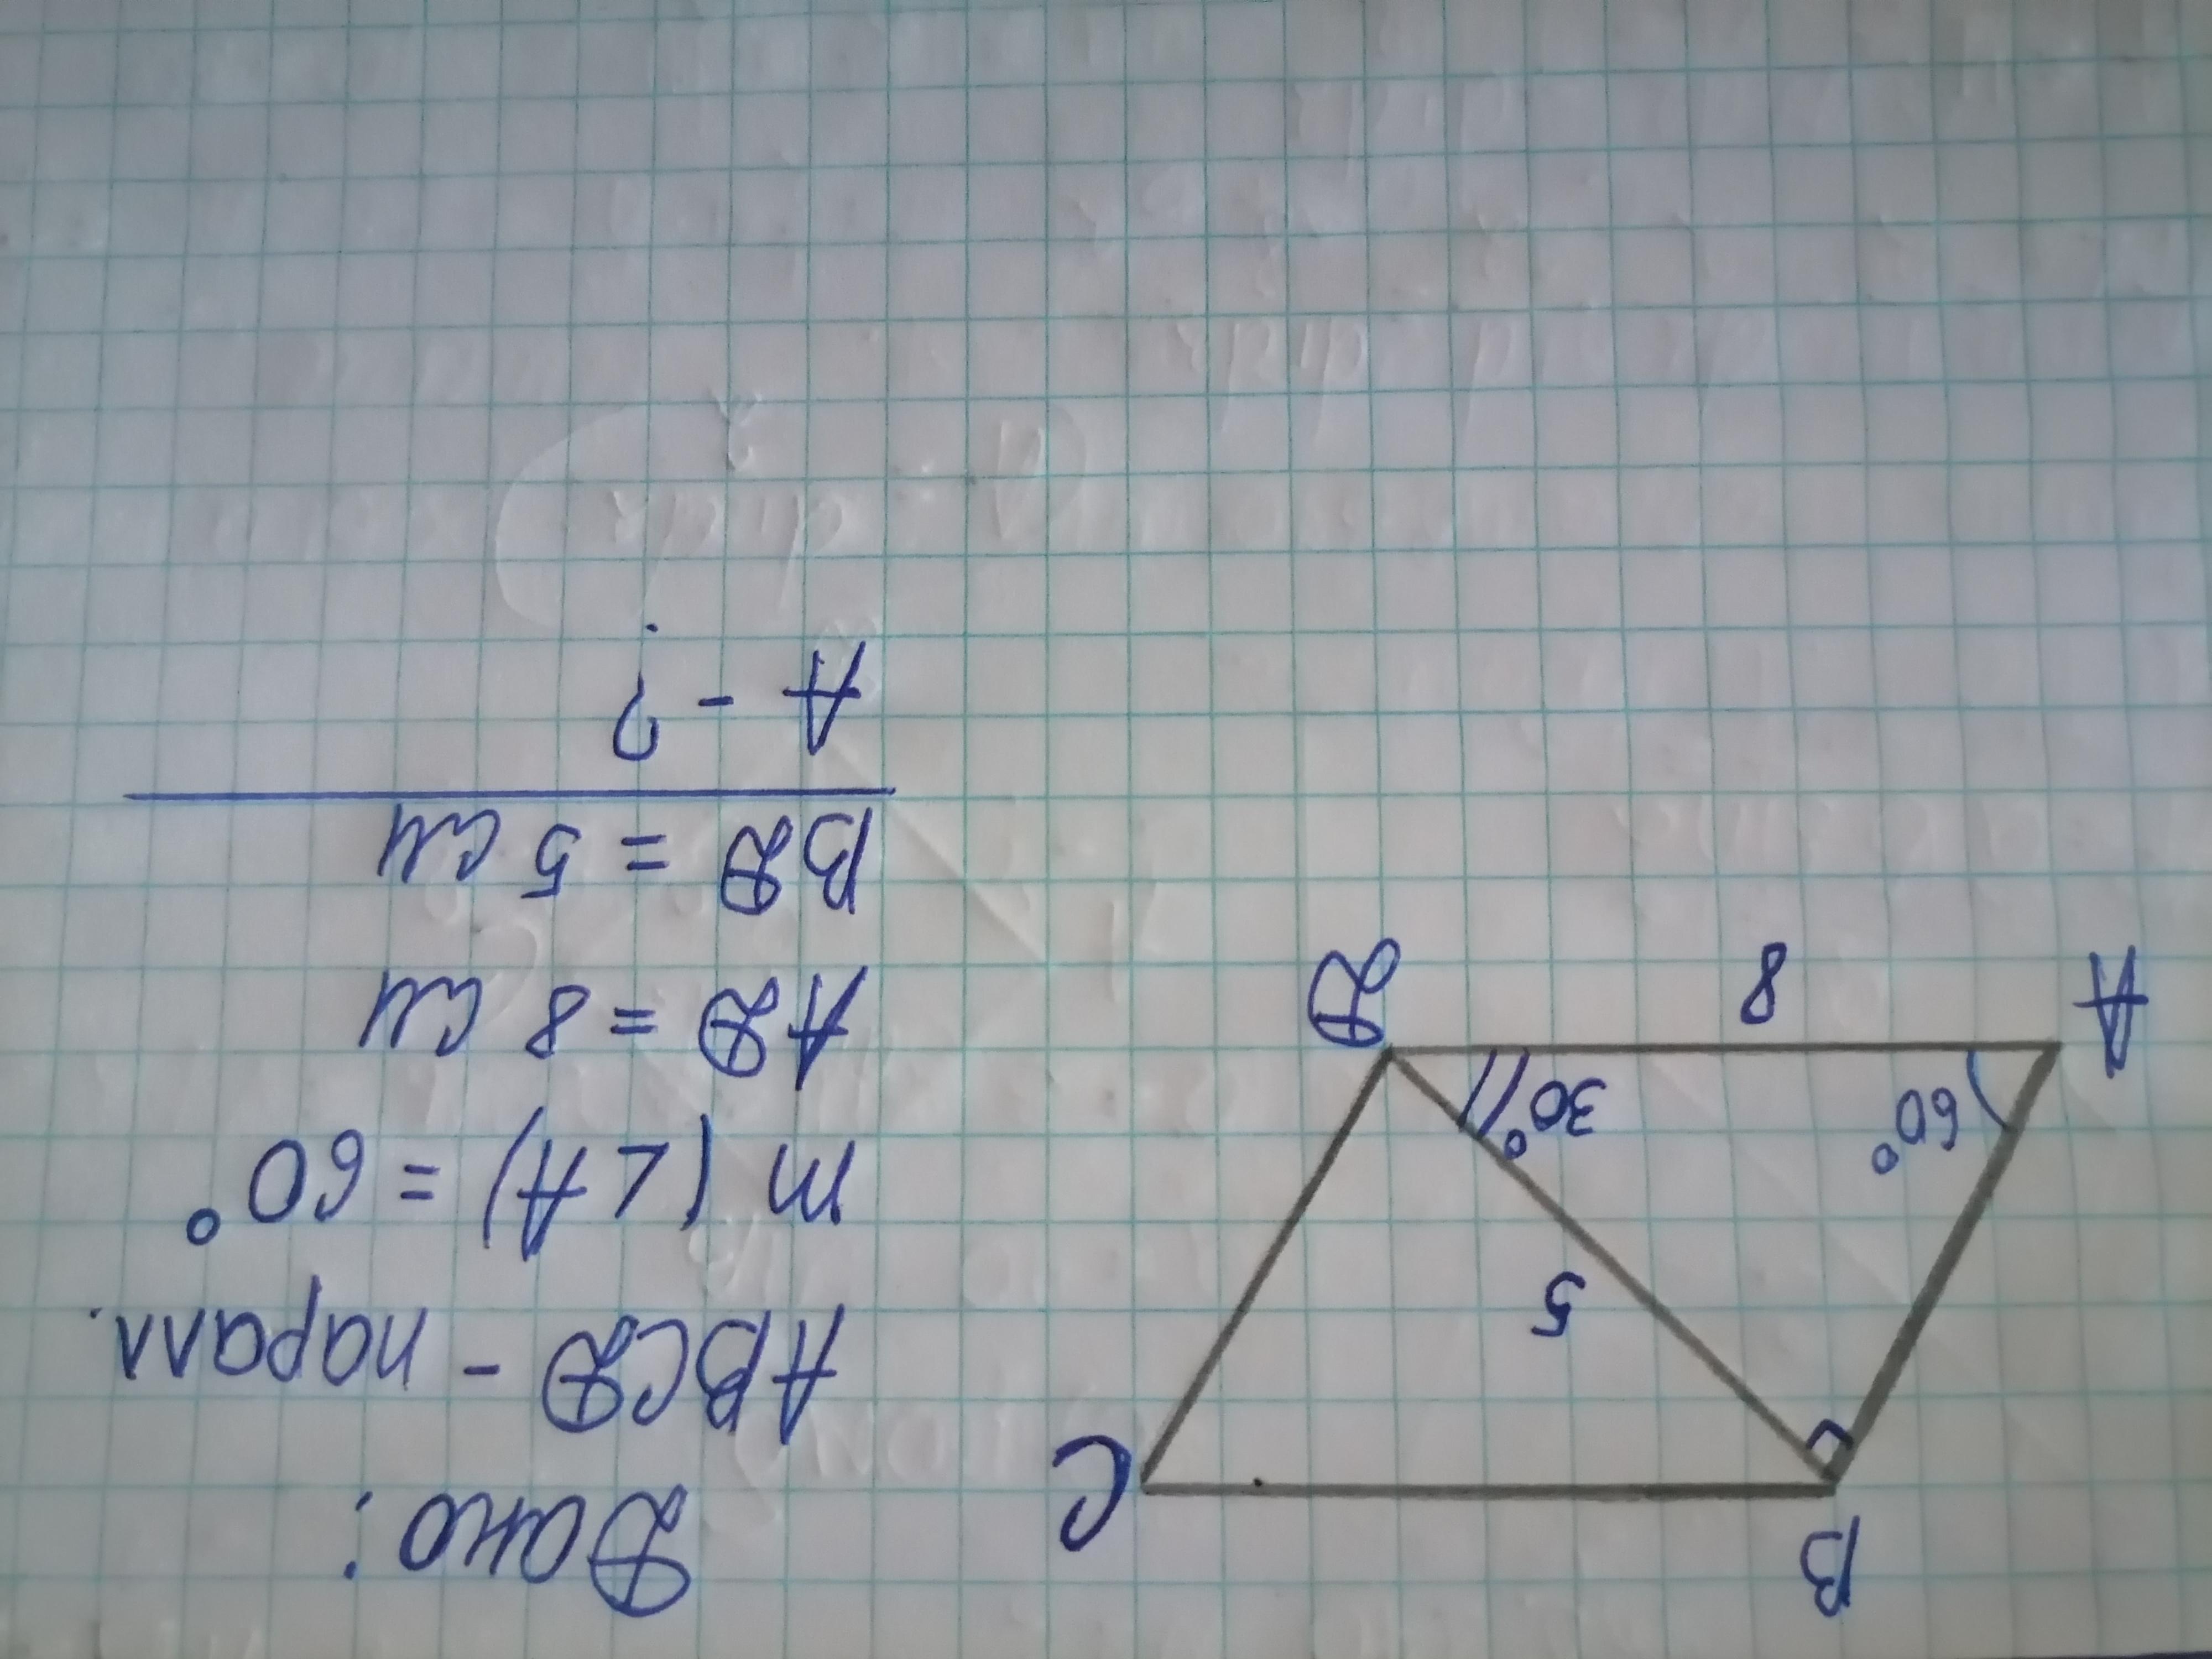 Дано:
ABCD - паралл.
m (<A) = 60°
AD = 8 см
BD = 5 см
A - ?
B
C
5
60°
30°
A
8
D